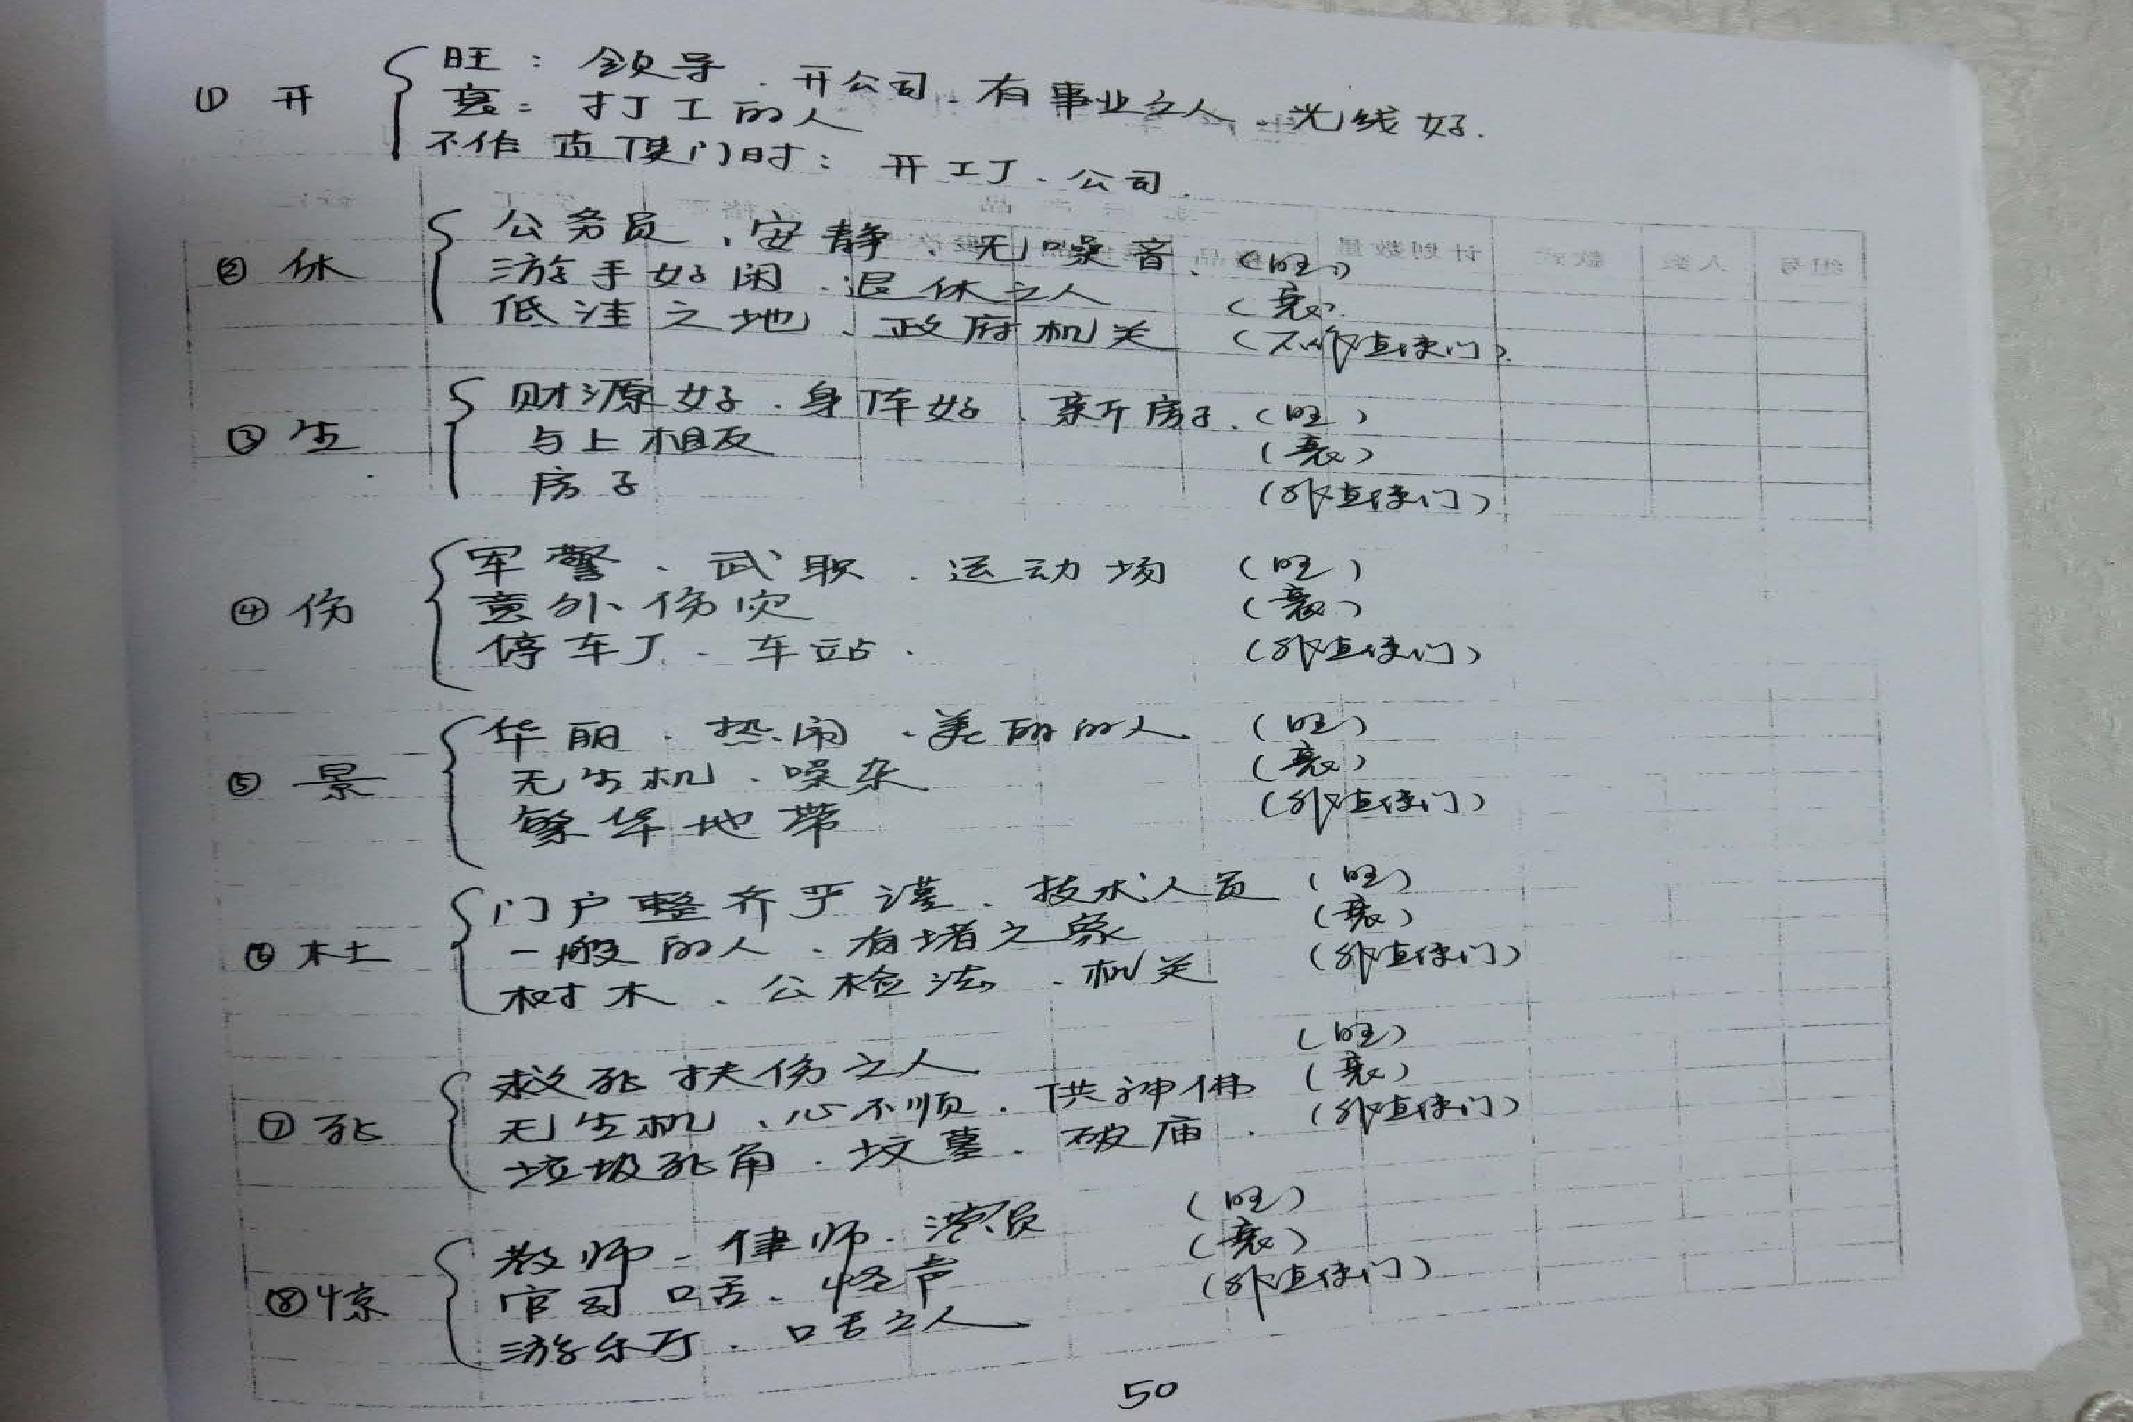 ① 开
旺：领导、开公司、有事业之人、光线好.
衰：打工的人
不作直使门时：开工厂、公司.
② 休
公务员、安静、无噪音、（旺）
游手好闲、退休之人（衰）
低洼之地、政府机关（不作直使门）
③ 生
财源好、身体好、新房子.（旺）
与上相反（衰）
房子（非直使门）
④ 伤
军警、武职、运动场（旺）
意外伤灾（衰）
停车厂、车站.（非直使门）
⑤ 景
华丽、热闹、美丽的人（旺）
无生机、噪杂（衰）
繁华地带（非直使门）
⑥ 杜
门户整齐严谨、技术人员（旺）
一般的人、有堵之象（衰）
树木、公检法、机关（非直使门）
⑦ 死
救死扶伤之人（旺）
无生机、心不顺、供神佛（衰）
垃圾死角、坟墓、破庙.（非直使门）
⑧ 惊
教师、律师、演员（旺）
官司口舌、怪声（衰）
游乐厅、口舌之人（非直使门）
50